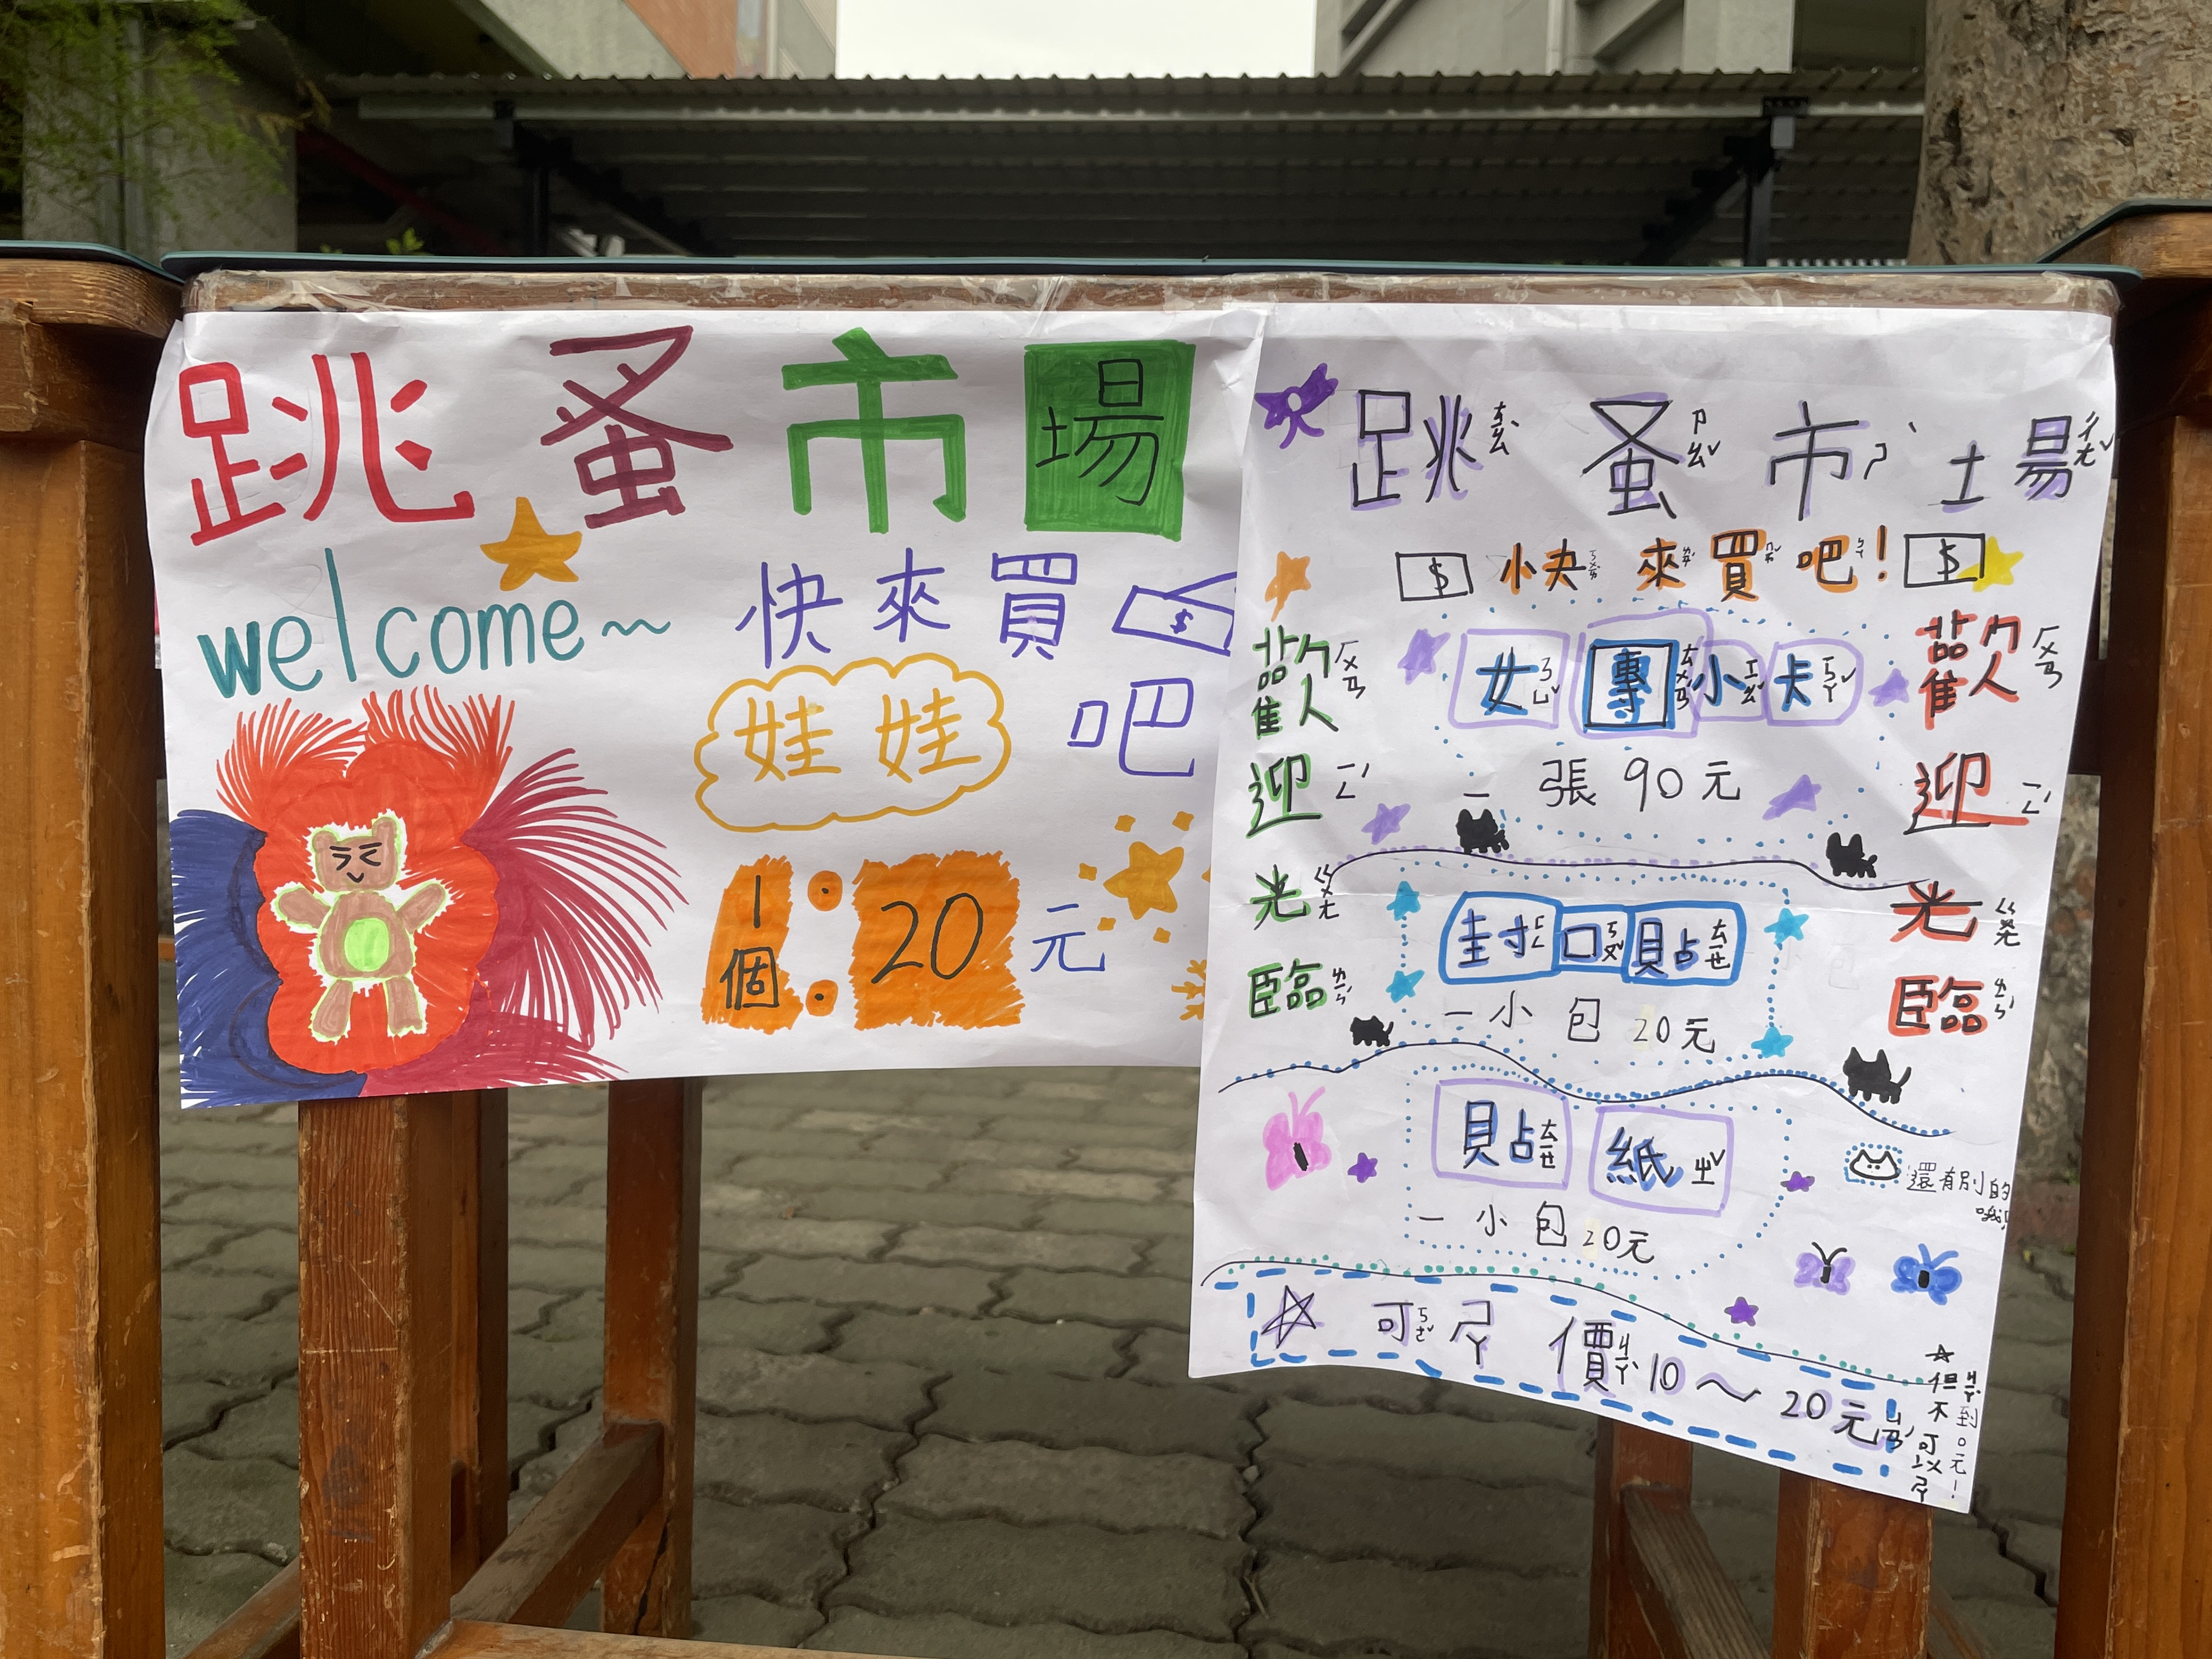 跳蚤市場
welcome~ 快來買
$
娃娃 吧
1個：20元
跳ㄊㄠˋ蚤ㄗㄠˇ市ㄕˋ場ㄔㄤˇ
$ 快來買吧! $
歡ㄏㄨㄢ迎ㄧㄥˊ光ㄍㄨㄤ臨ㄌㄧㄣˊ
女ㄋㄩˇ專ㄊㄨㄢˊ小ㄒㄧㄠˇ卡ㄎㄚˇ
一張90元
封ㄈㄥ口ㄎㄡˇ貼ㄊㄧㄝ
一小包20元
貼ㄊㄧㄝ紙ㄓˇ
一小包20元
歡ㄏㄨㄢ迎ㄧㄥˊ光ㄍㄨㄤ臨ㄌㄧㄣˊ
還有別的
哦!
可ㄎㄜˇㄕㄚ價ㄐㄧㄚˋ10～20元
但不可以ㄕㄚ
ㄐㄧㄚˋ到0元!